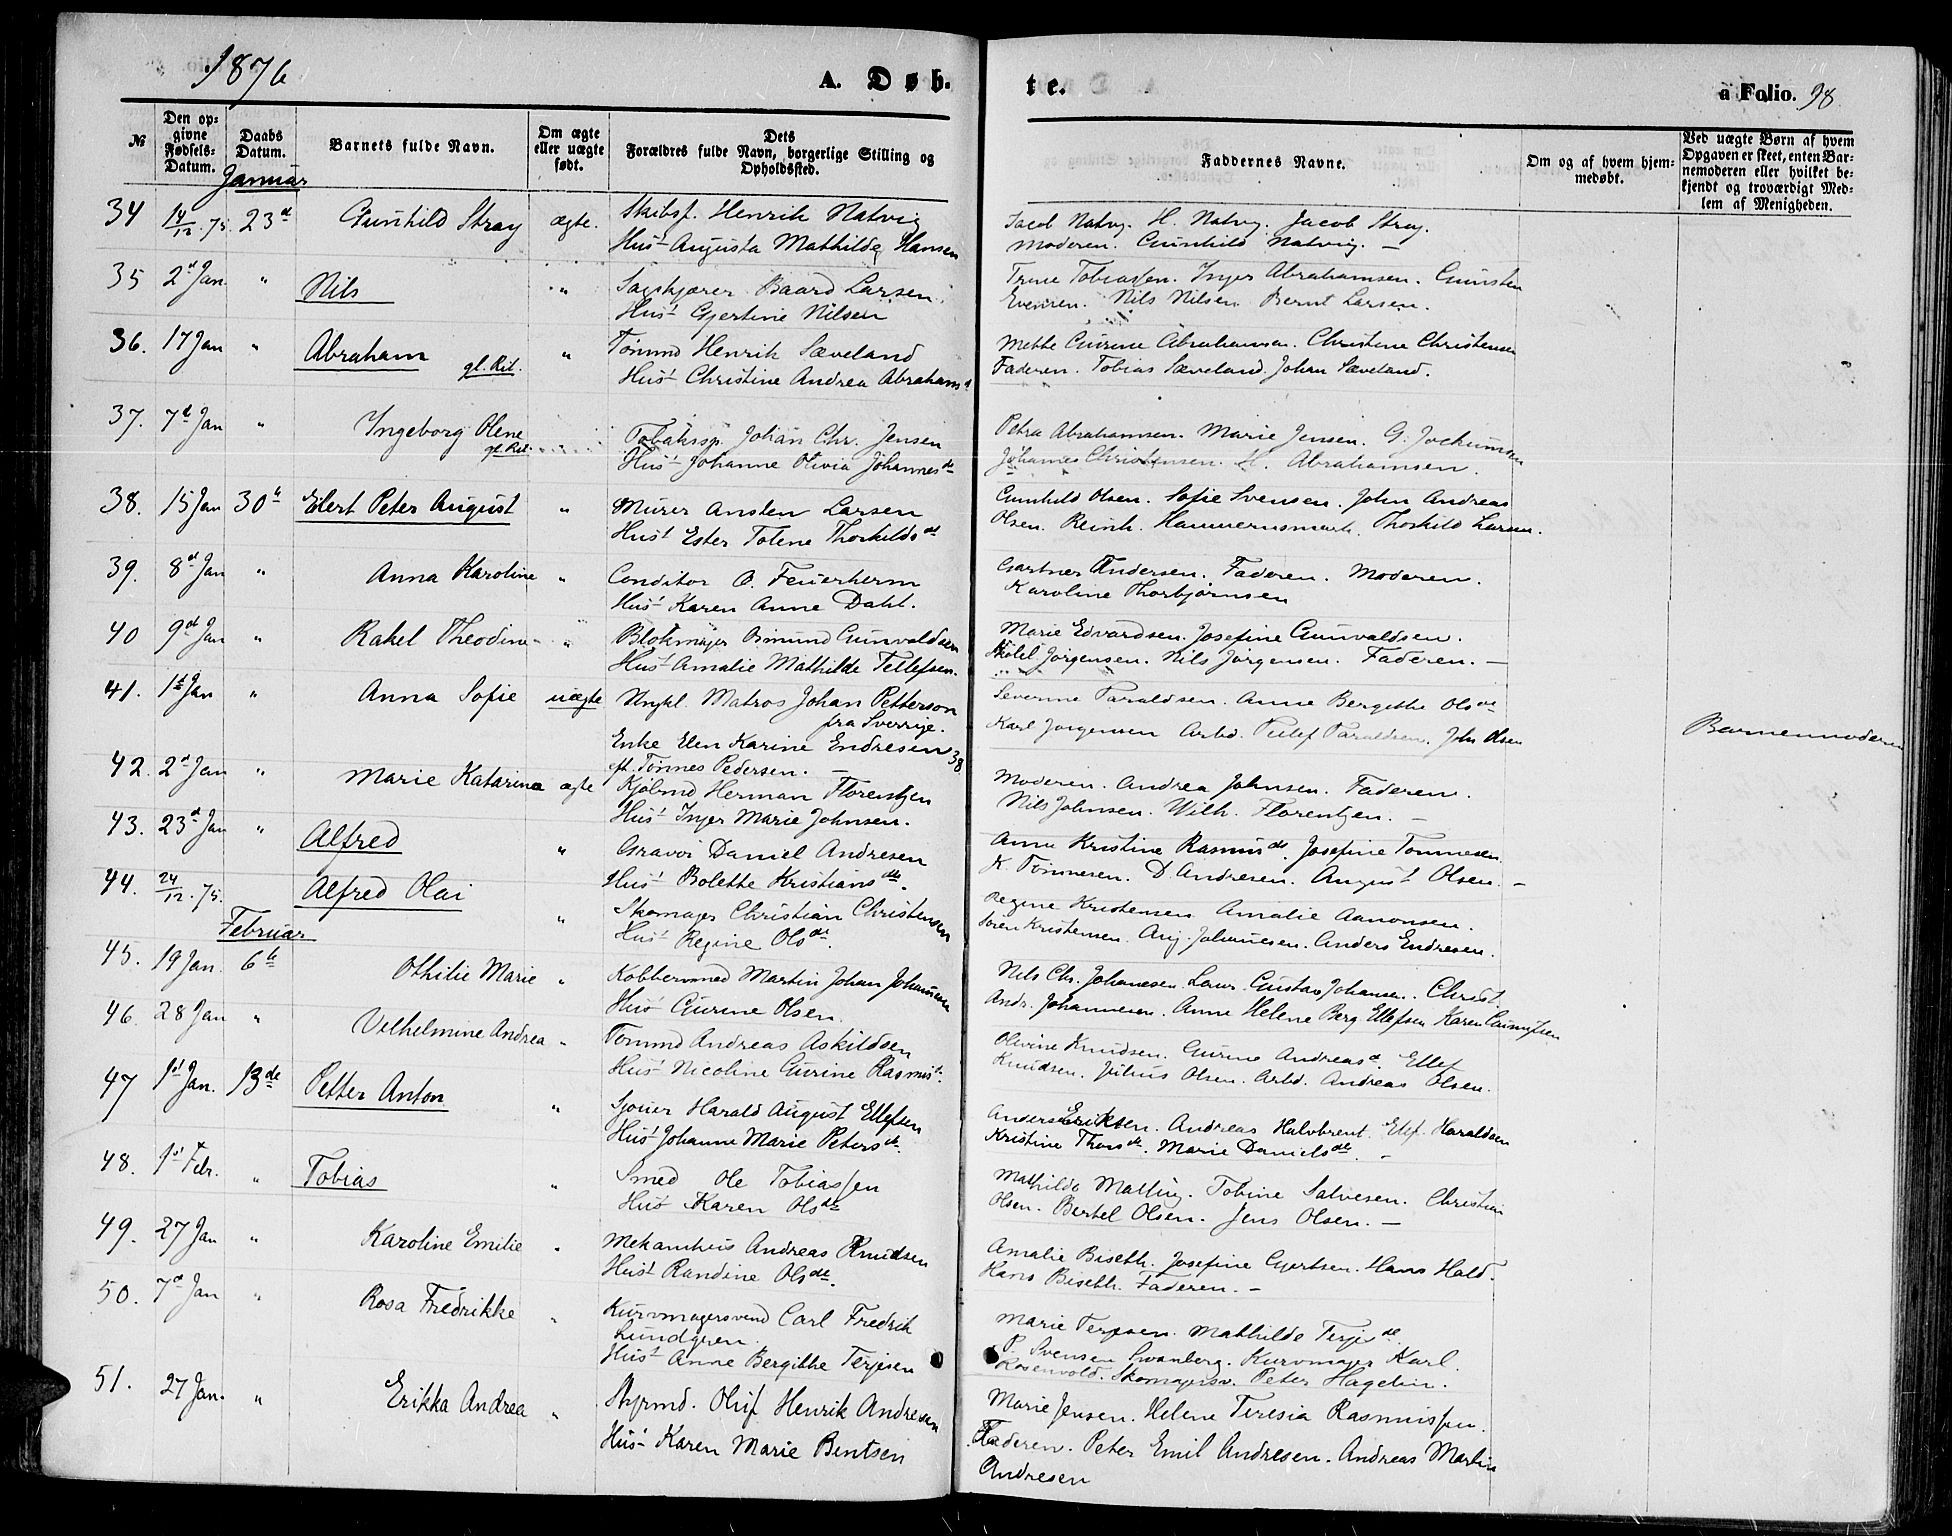 1876
A. Døb-
te.
a Folio. 98.
№
Den op-
givne
Fødsels-
Datum.
Daabs
Datum.
Barnets fulde Navn.
Om ægte
eller uægte
født.
Dets
Forældres fulde Navn, borgerlige Stilling og
Opholdssted.
Faddernes Navne.
Om og af hvem hjem-
medøbt.
Ved uægte Børn af hvem
Opgaven er skeet, enten Bar-
nemoderen eller hvilket be-
kjendt og troværdigt Med-
lem af Menigheden.
Januar
34 14/12.75. 23d Gunhild Stray ægte. Skibsf. Henrik Natvig
Hust Augusta Mathilde Hansen
Jacob Natvg. H. Natvig. Jacob Stray.
Moderen. Gunhild Natvig. —
35 2d Jan. " Nils " Sagskjærer Baard Larsen.
Hust Gjertine Nilsen
Trine Tobiassen. Inger Abrahamsen. Gunsten
Evensen. Nils Nilsen Bernt Larsen.
36. 17 Jan " Abraham gl. Ril. " Tømmd Henrik Sæveland
Hust Christine Andrea Abrahams d
Mette Gurine Abrahamsen. Christine Christensen
Faderen. Tobias Sæveland. Johan Sæveland.
37. 7d Jan " Ingeborg Olene gl. Ril. Tobaksp. Johan Chr. Jensen
Hust Johanne Olivia Johannes de
Petra Abrahamsen. Marie Jensen. G. Jochumsen
Johannes Christensen. H. Abrahamsen.
38. 15 Jan 30te Eilert Peter August " Murer Ansten Larsen
Hust Ester Tolene Thorkilds dt
Gunhild Olsen. Sofie Svensen. John Andreas
Olsen. Reinh. Hammernsmark. Thorkild Larsen.
39. 8d Jan " Anna Karoline " Conditor O. Feuerherm
Hust Karen Anne Dahl.
Gartner Andersen. Faderen. Moderen.
Karoline Thorbjørnsen
40 9d Jan " Rakel Theodine " Blokmager Osmund Gunvaldsen
Hust Amalie Mathilde Tellefsen.
Marie Edvardsen. Josefine Gunvaldsen.
Jørgensen. Nils Jørgensen. Faderen. —
41. 1st Jan " Anna Sofie uægte Ungkl. Matros Johan Petterson
fra Sverrige.
Enke Elen Karine Endresen 38
eft. Tønnes Pedersen. —
Severine Taraldsen. Anne Bergithe Ols de
Karl Jørgensen Arbd. Tellef Taraldsen. John Olsen
Barnemoderen
42. 2d Jan " Marie Katarina ægte Kjøbmd Herman Florentzen
Hust Inger Marie Johnsen.
Moderen. Andrea Johnsen. Faderen.
Nils Johnsen. Wilh. Florentzen. —
43. 23d Jan " Alfred " Gravør Daniel Andresen
Hust Bolette Kristians dt.
Anne Kristine Rasmus dt. Josefine Tønnesen
K. Tønnesen. D. Andresen. August Olsen. —
44. 24/12.75. Alfred Olai " Skomager Christian Christensen
Hust Regine Ols dt.
Regine Kristensen Amalie Aanonsen.
Søren Kristensen. Aug. Johannesen. Anders Endresen.
Februar
45. 19 Jan. 6te Othilie Marie " Kobbersmed Martin Johan Johansen
Hust Gurine Olsen.
Nils Chr. Johannesen. Laur. Gustav Johansen. Christ.
Andr. Johannesen. Anne Helene Berg Ellefsen Karen
46. 28 Jan " Vilhelmine Andrea " Tømmd Andreas Askildsen
Hust Nicoline Gurine Rasmus t.
Olivine Knudsen. Gurine Andreas d. Ellef
Knudsen. Julius Olsen. Arbd. Andreas Olsen.
47 1st Jan. 13de Petter Anton " Sjouer Harald August Ellefsen
Hust Johanne Marie Peters dt.
Anders Eriksen. Andreas Halvbrent. Elef. Haraldsen
Kristine Thors dt. Marie Daniels dt. —
48. 1st Febr. " Tobias " Smed Ole Tobiassen
Hust Karen Ols dt
Mathilde Malling. Tobine Salvesen. Christian
Olsen. Bertel Olsen. Jens Olsen. —
49. 27 Jan " Karoline Emilie " Mekanikus Andreas Knudsen
Hust Randine Ols dt.
Amalie Biseth. Josefine Gjertsen. Hans Hald.
Hans Biseth. Faderen. —
50. 7d Jan " Rosa Fredrikke " Kurvmagersvend Carl Fredrik
Lundgren.
Hust Anne Bergithe Terjesen
Marie Terjesen. Mathilde Terjes dt.
P. Svensen Svanberg. Kurvmager Karl
Rosenvold. Skomagersv. Peter Hagelin.
51. 27 Jan. " Erikka Andrea " Styrmd. Oluf Henrik Andresen
Hust Karen Marie Bentsen
Marie Jensen. Helene Teresia Rasmussen.
Faderen. Peter Emil Andresen. Andreas Martin
Andresen